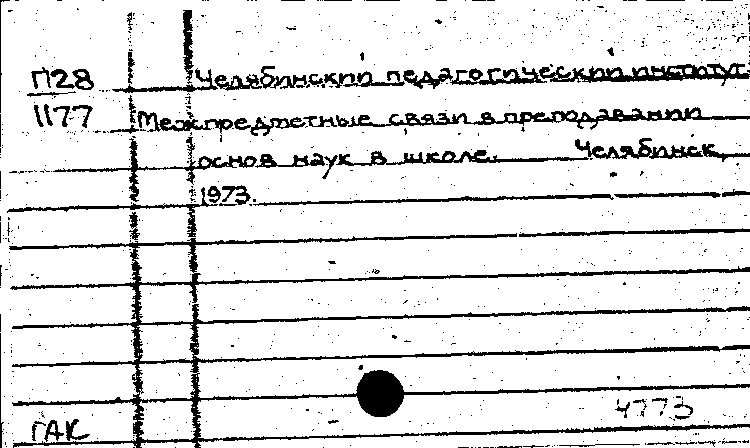 П28 Челябинский педагогический институт
1177 Межпредметные связи в преподавании
основ наук в школе. Челябинск,
1973.
4773
ГАК